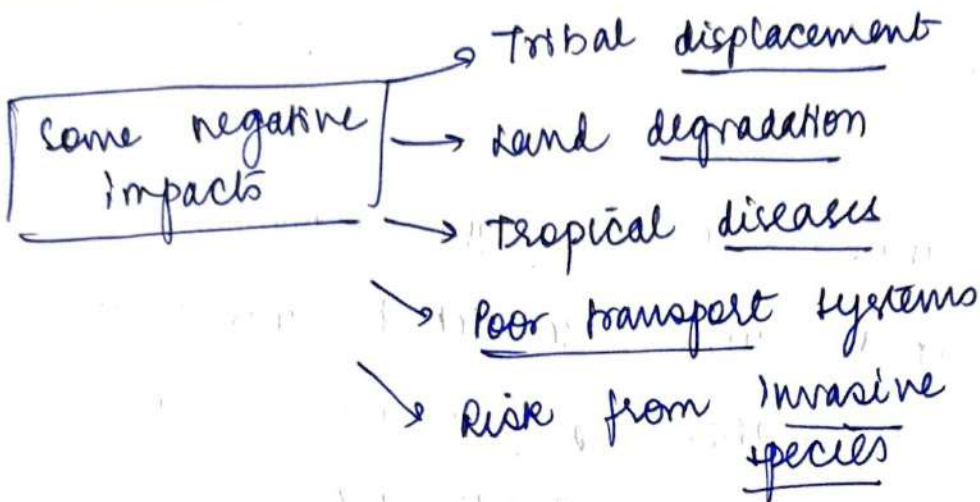 Some negative
impacts
Tribal displacement
Land degradation
Tropical diseases
Poor transport systems
Risk from invasive
species